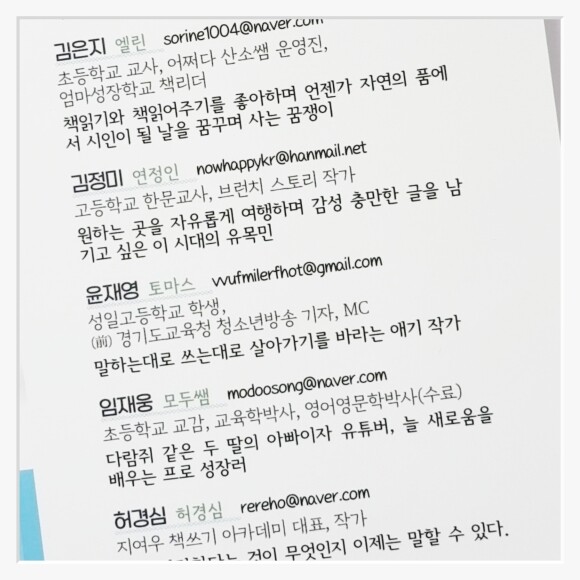 김은지 엘린 sorine1004@naver.com
초등학교 교사, 어쩌다 산소쌤 운영진,
엄마성장학교 책리더
책읽기와 책읽어주기를 좋아하며 언젠가 자연의 품에
서 시인이 될 날을 꿈꾸며 사는 꿈쟁이
김정미 연정인 nowhappykr@hanmail.net
고등학교 한문교사, 브런치 스토리 작가
원하는 곳을 자유롭게 여행하며 감성 충만한 글을 남
기고 싶은 이 시대의 유목민
윤재영 토마스 vvufmilerfhot@gmail.com
성일고등학교 학생,
(前) 경기도교육청 청소년방송 기자, MC
말하는대로 쓰는대로 살아가기를 바라는 애기 작가
임재웅 모두쌤 modoosong@naver.com
초등학교 교감, 교육학박사, 영어영문학박사(수료)
다람쥐 같은 두 딸의 아빠이자 유튜버, 늘 새로움을
배우는 프로 성장러
허경심 허경심 rereho@naver.com
지여우 책쓰기 아카데미 대표, 작가
것이 무엇인지 이제는 말할 수 있다.